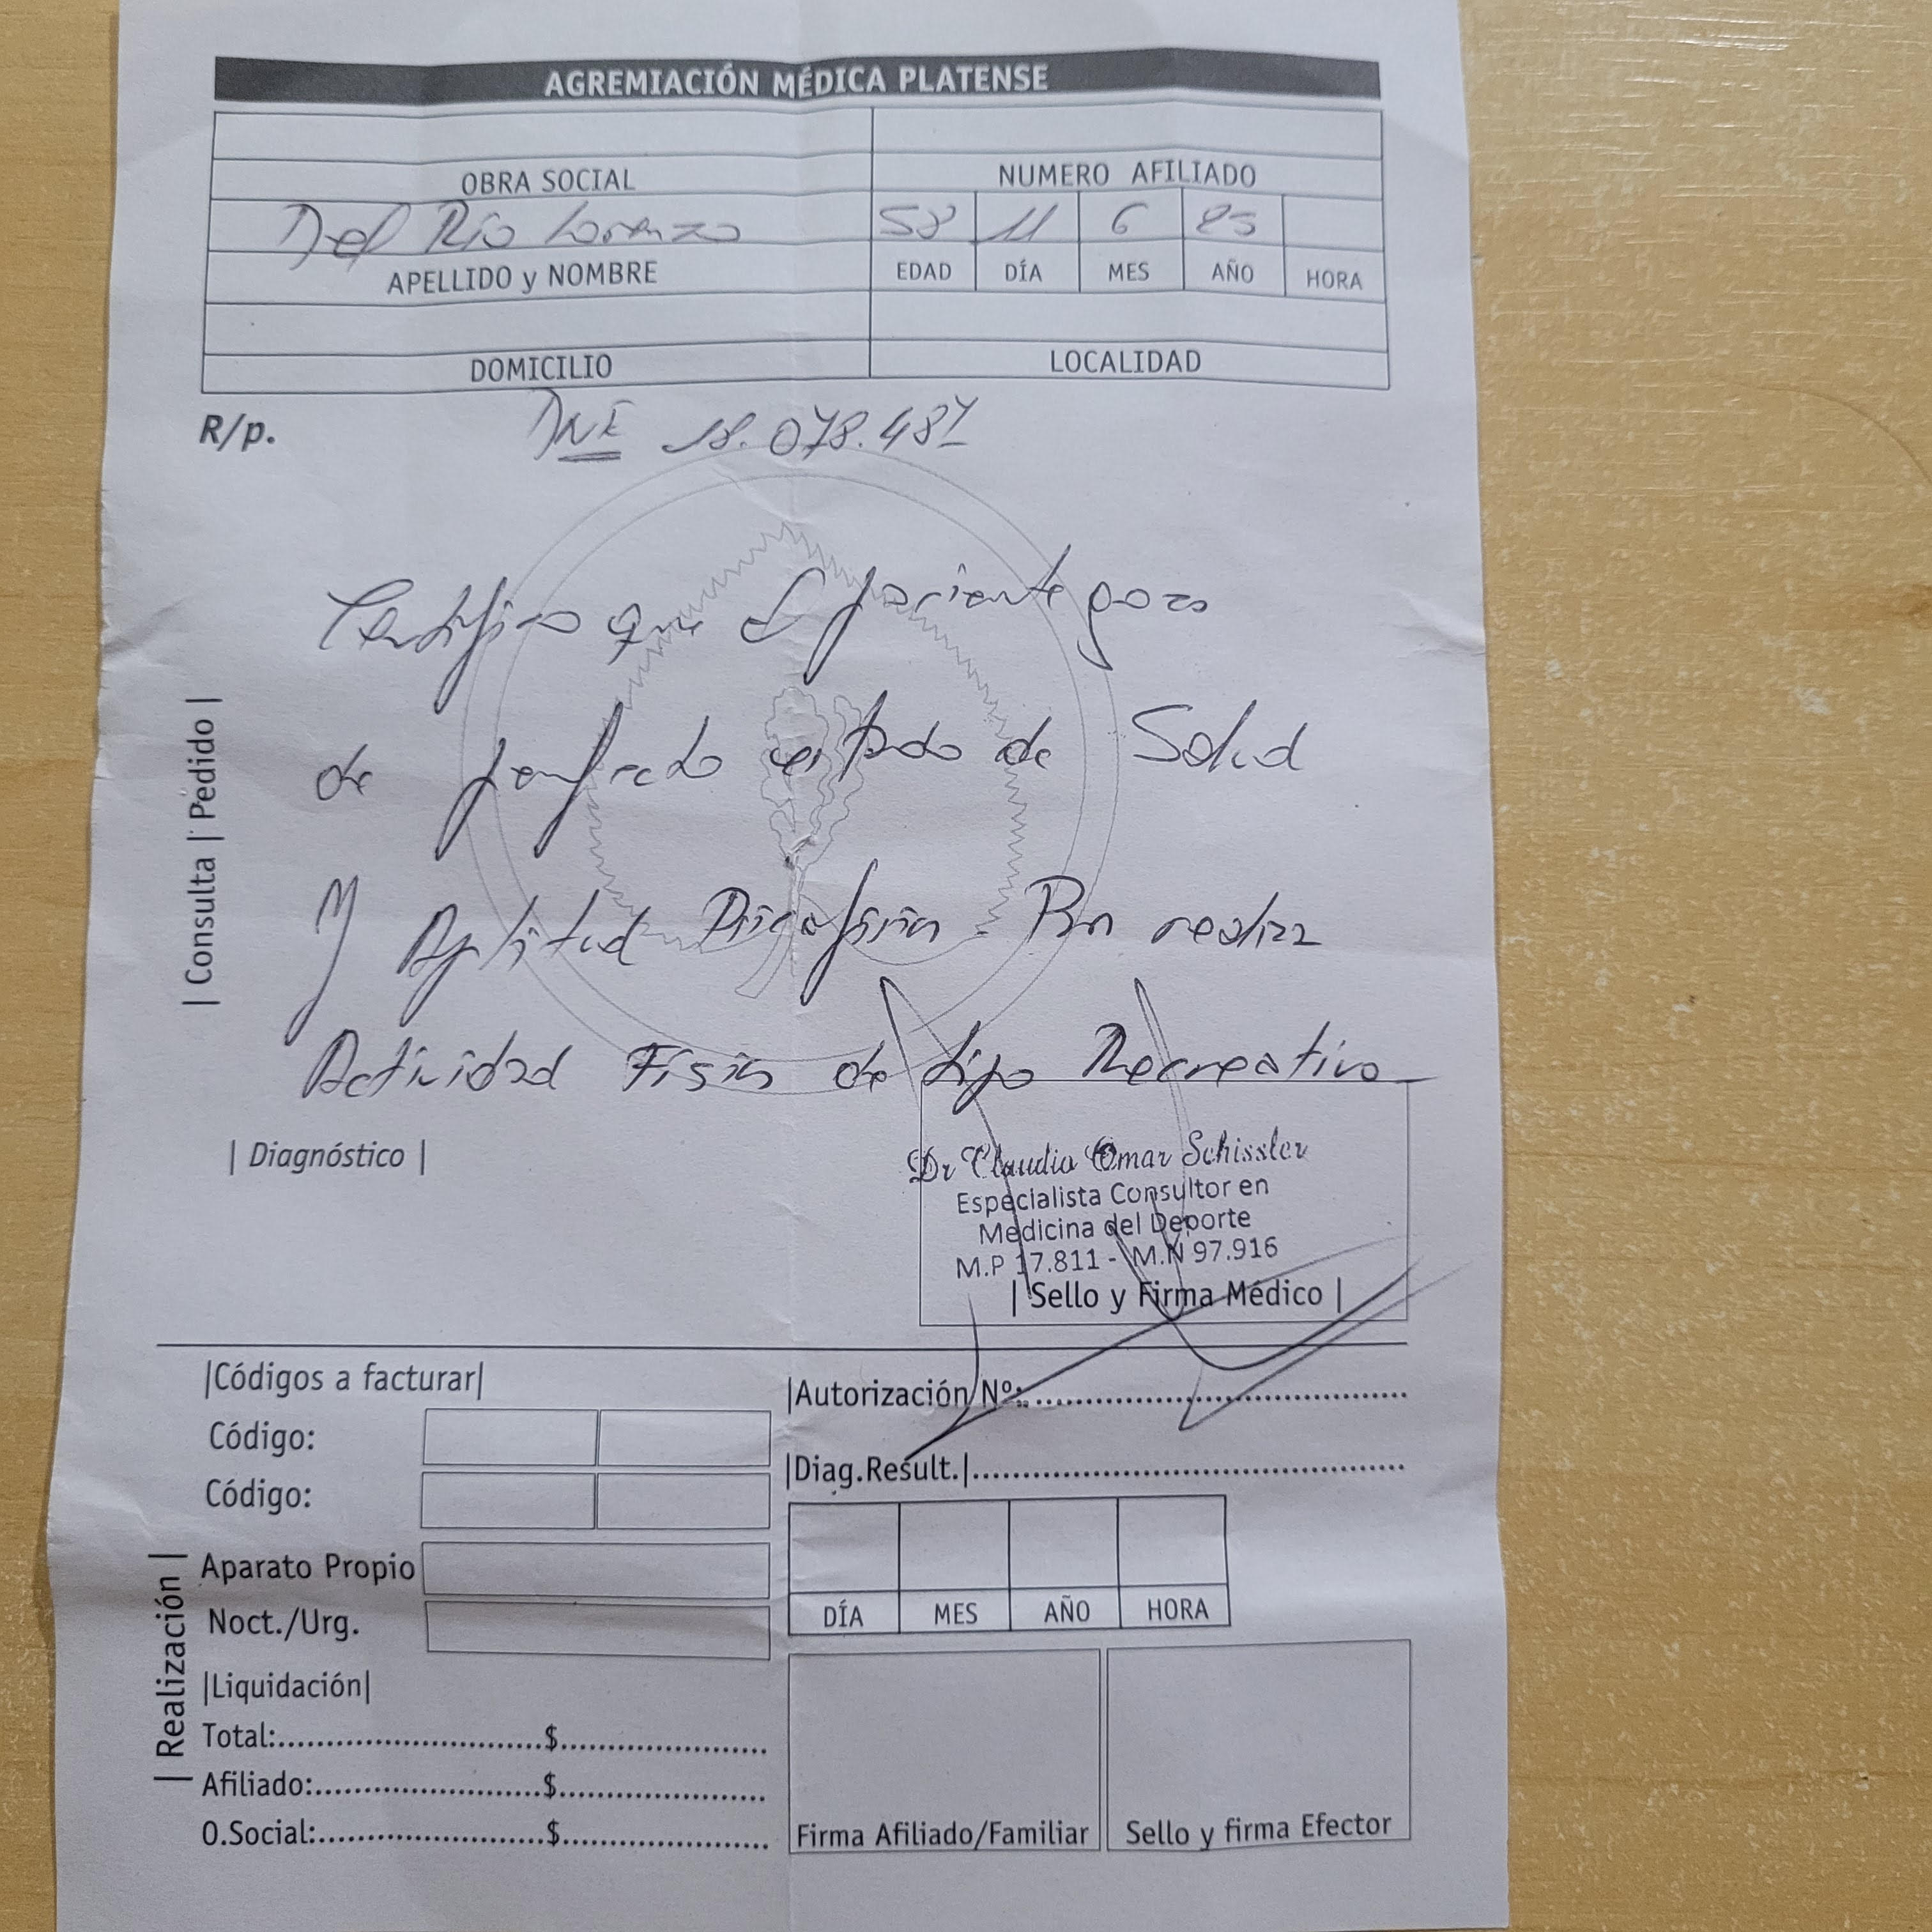 AGREMIACIÓN MÉDICA PLATENSE
OBRA SOCIAL NUMERO AFILIADO
Del Río Lorenzo 58 11 6 25
APELLIDO y NOMBRE EDAD DÍA MES AÑO HORA
DOMICILIO LOCALIDAD
R/p. DNI 18.078.487
Certifico que el paciente goza
de perfecto estado de Salud
y Aptitud Psicofísica Pra realizar
Actividad Física de tipo Recreativo
| Consulta | Pedido |
| Diagnóstico |
Dr Claudio Omar Schissler
Especialista Consultor en
Medicina del Deporte
M.P 17.811 - M.N 97.916
| Sello y Firma Médico |
|Códigos a facturar|
Código:
Código:
Aparato Propio
Noct./Urg.
|Liquidación|
Total:..........................$.....................
Afiliado:.......................$.....................
O.Social:.......................$.....................
| Realización |
|Autorización Nº:.....................................
|Diag.Result.|..........................................
DÍA MES AÑO HORA
Firma Afiliado/Familiar Sello y firma Efector